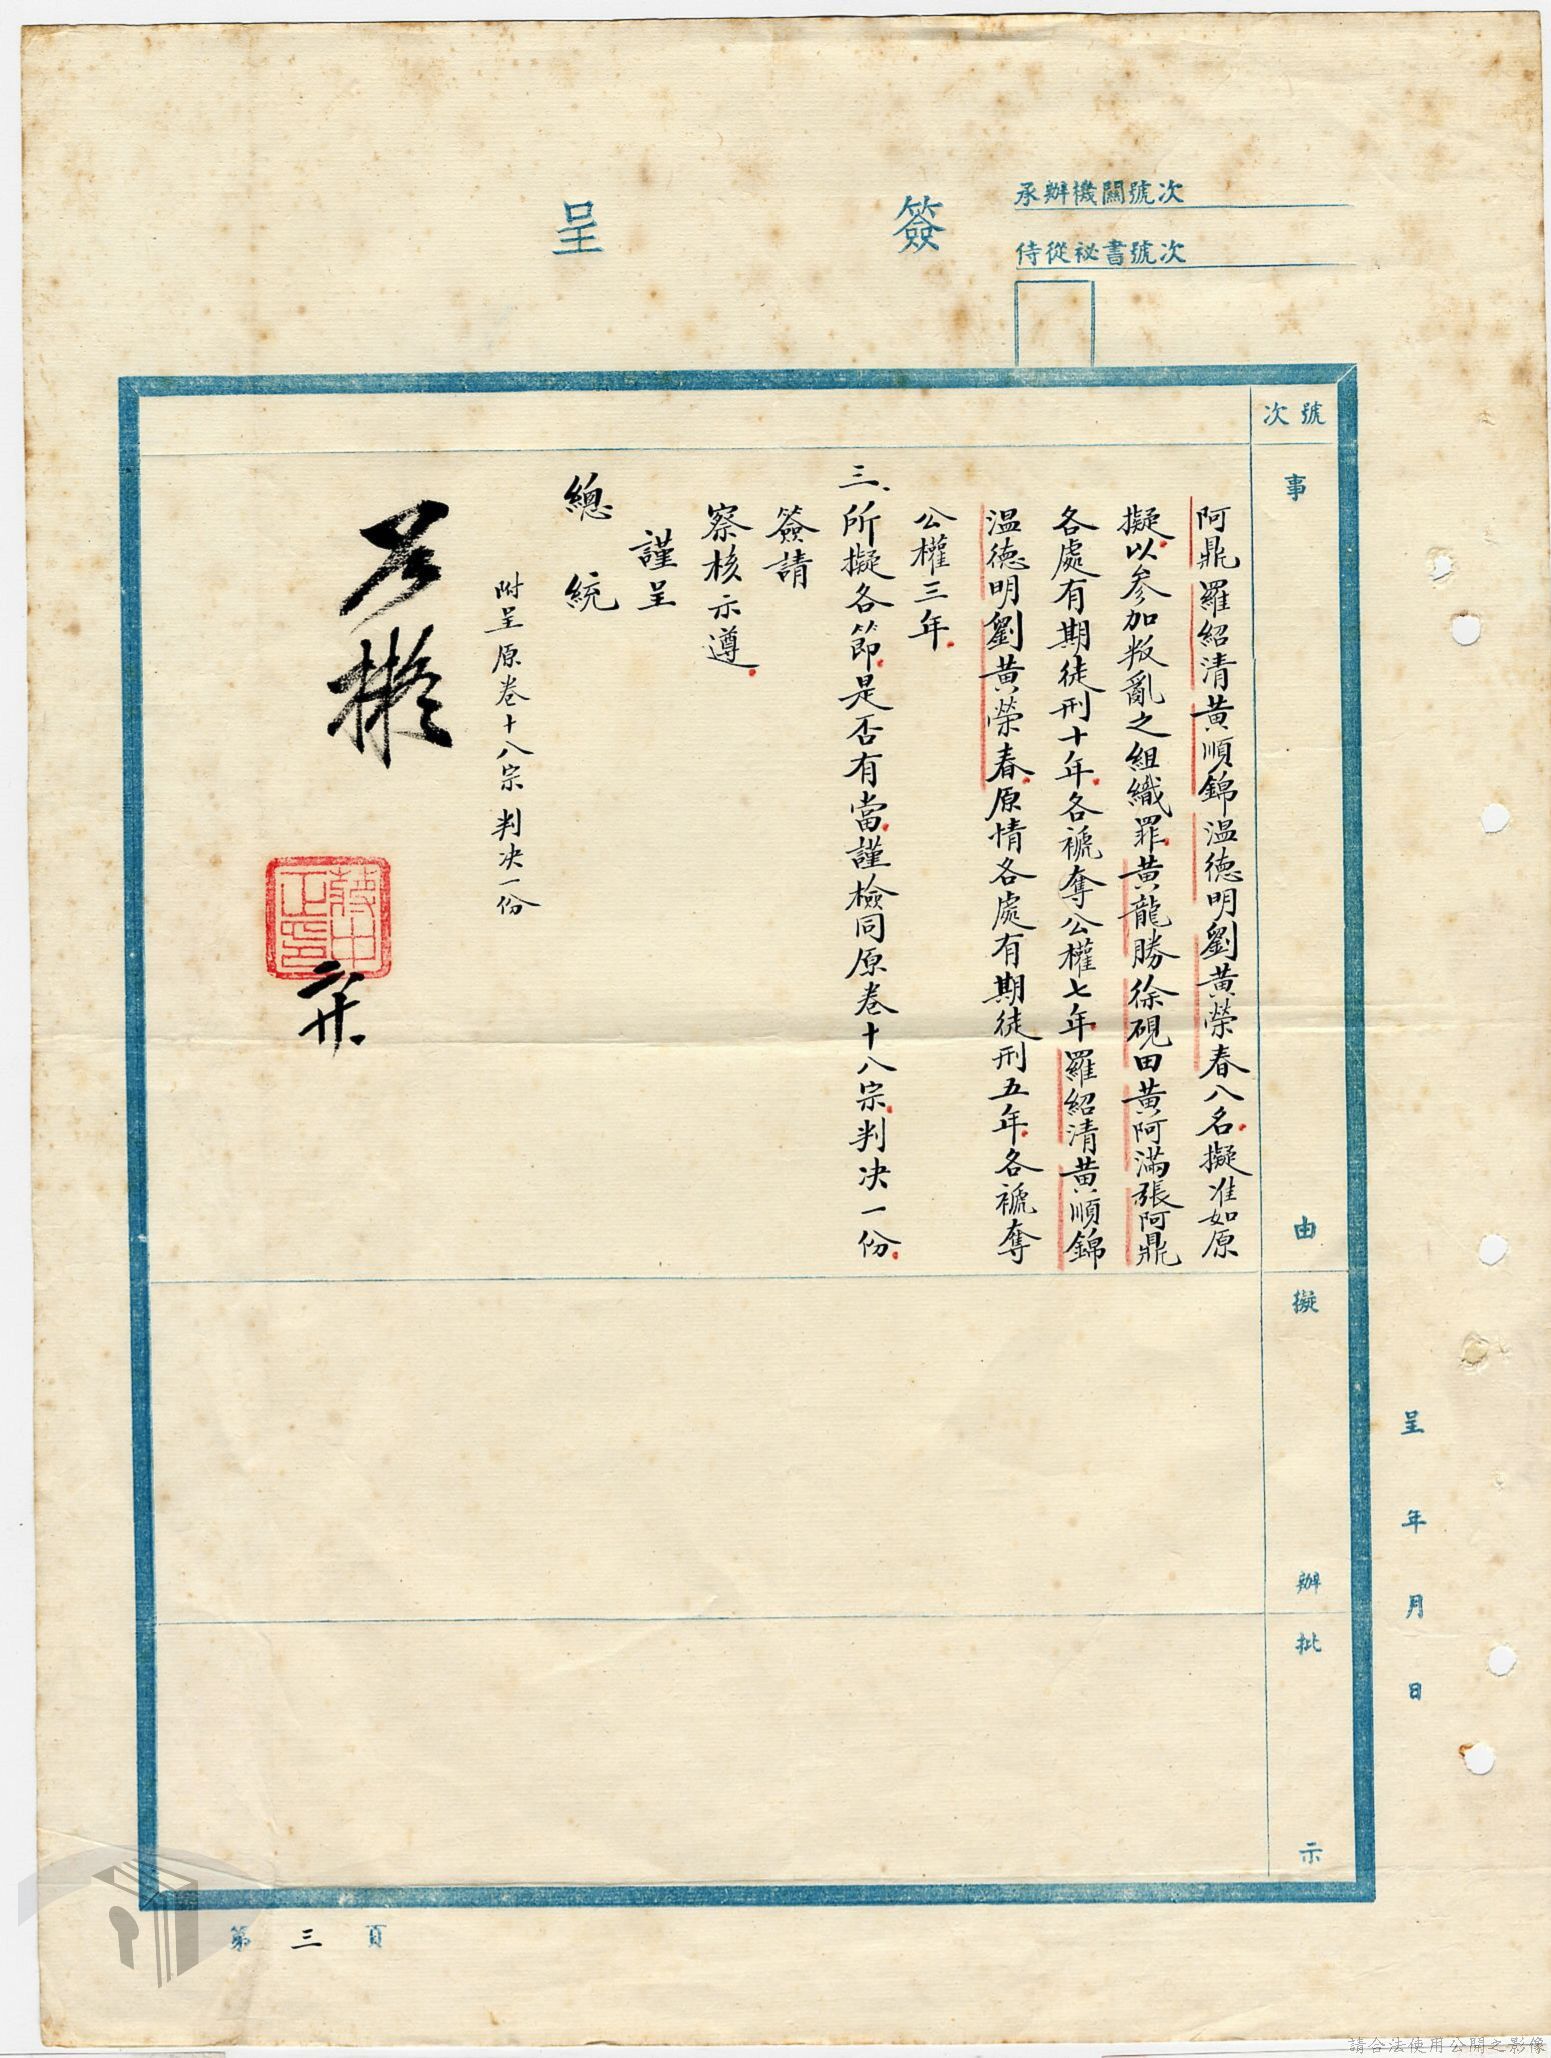 簽呈
承辦機關號次
侍從祕書號次
號次
事由
擬辦
批示
呈 年 月 日
阿鼎羅紹清黃順錦温德明劉黃榮春八名擬准如原
擬以參加叛亂之組織罪黃龍勝徐硯田黃阿滿張阿鼎
各處有期徒刑十年各褫奪公權七年羅紹清黃順錦
温德明劉黃榮春原情各處有期徒刑五年各褫奪
公權三年
三、所擬各節是否有當謹檢同原卷十八宗判决一份
簽請
察核示遵
謹呈
總統
附呈原卷十八宗 判决一份
如擬
蔣中正印
第三頁
請合法使用公開之影像